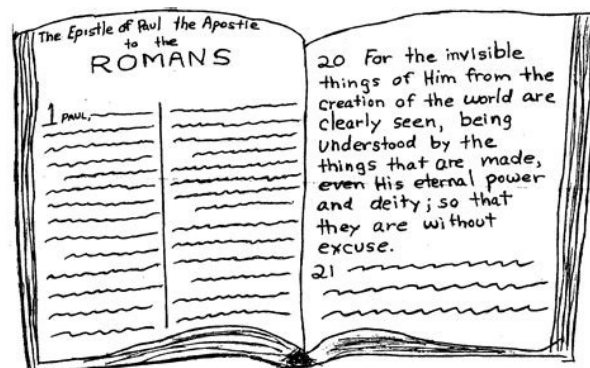 The Epistle of Paul the Apostle
to the
ROMANS
1 PAUL,
20 For the invisible
things of Him from the
creation of the world are
clearly seen, being
understood by the
things that are made,
even His eternal power
and deity; so that
they are without
excuse.
21